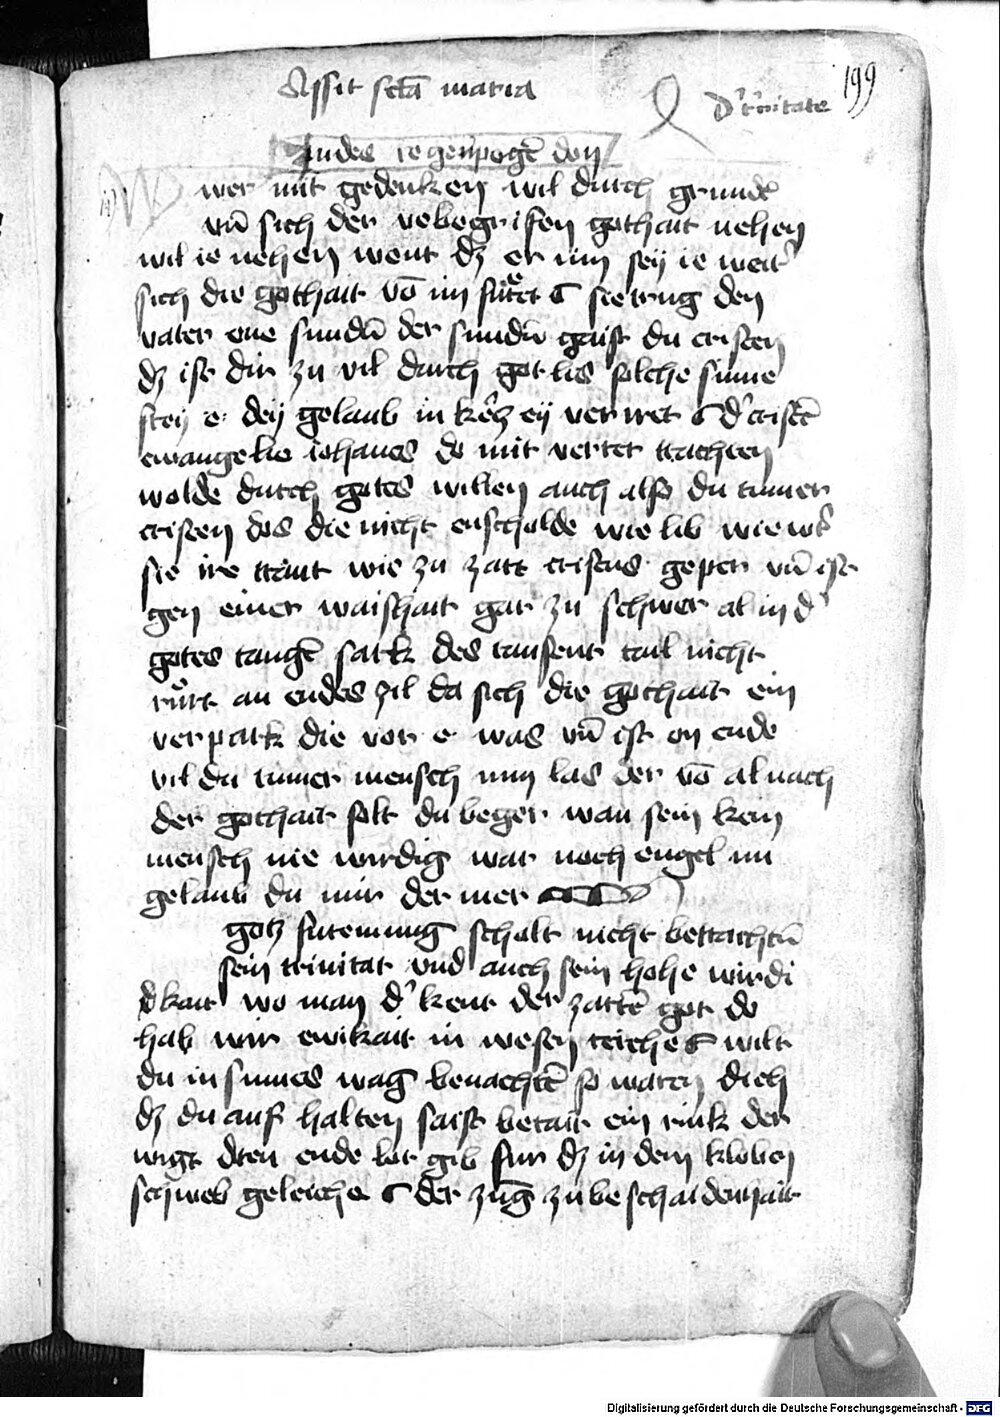 Assit scta maria
d' t'nitate 199
in des regenpogē don
wer mit gedenken wil durch grunde
vn̄ sich der vebegrifen gothait nehen
wil ie nehen went dz er im sey ie weit'
sich die gothait vō im fuͤret C sie trug den
vater one sundū der sundū gaist du cristen
dz ist dir zu vil durch got las solche sinne
stey e dey gelaub in ketzey verirret C d' cristē
ewangelie iohanes do mit vertet trachten
wolde durch gotes willen auch also du tumer
cristen das die nicht enscholde wie lib wie wt'
sie ire traut wie zu zart cristus geper vn̄ ist
gen einer waishait gar zu schwer al in d'
gotes taugē sark des tausent tail nicht
rurt an endes zil da sich die gothait ein
verpark die vor e was vn̄ ist on ende
vil du tumer mensch nun las der vō al nach
der gothait solt du beger wan sein kein
mensch nie wirdig war noch engel nu
gelaub du mir der mer
gotz furemung scholt nicht betrachtn̄
sein trinitat vnd auch sein hohe wirdi
kait wo man d' kent der zartē got do
hab wir ewikait in wesen reiche C wilt
du in sinnes wag benachtē so waren dich
dz du auf halten saist betait ein rink der
wigt dreu ende lot gib fur dz in dem kloben
schweb geleiche C der zung zu beschaidenhait
Digitalisierung gefördert durch die Deutsche Forschungsgemeinschaft - DFG